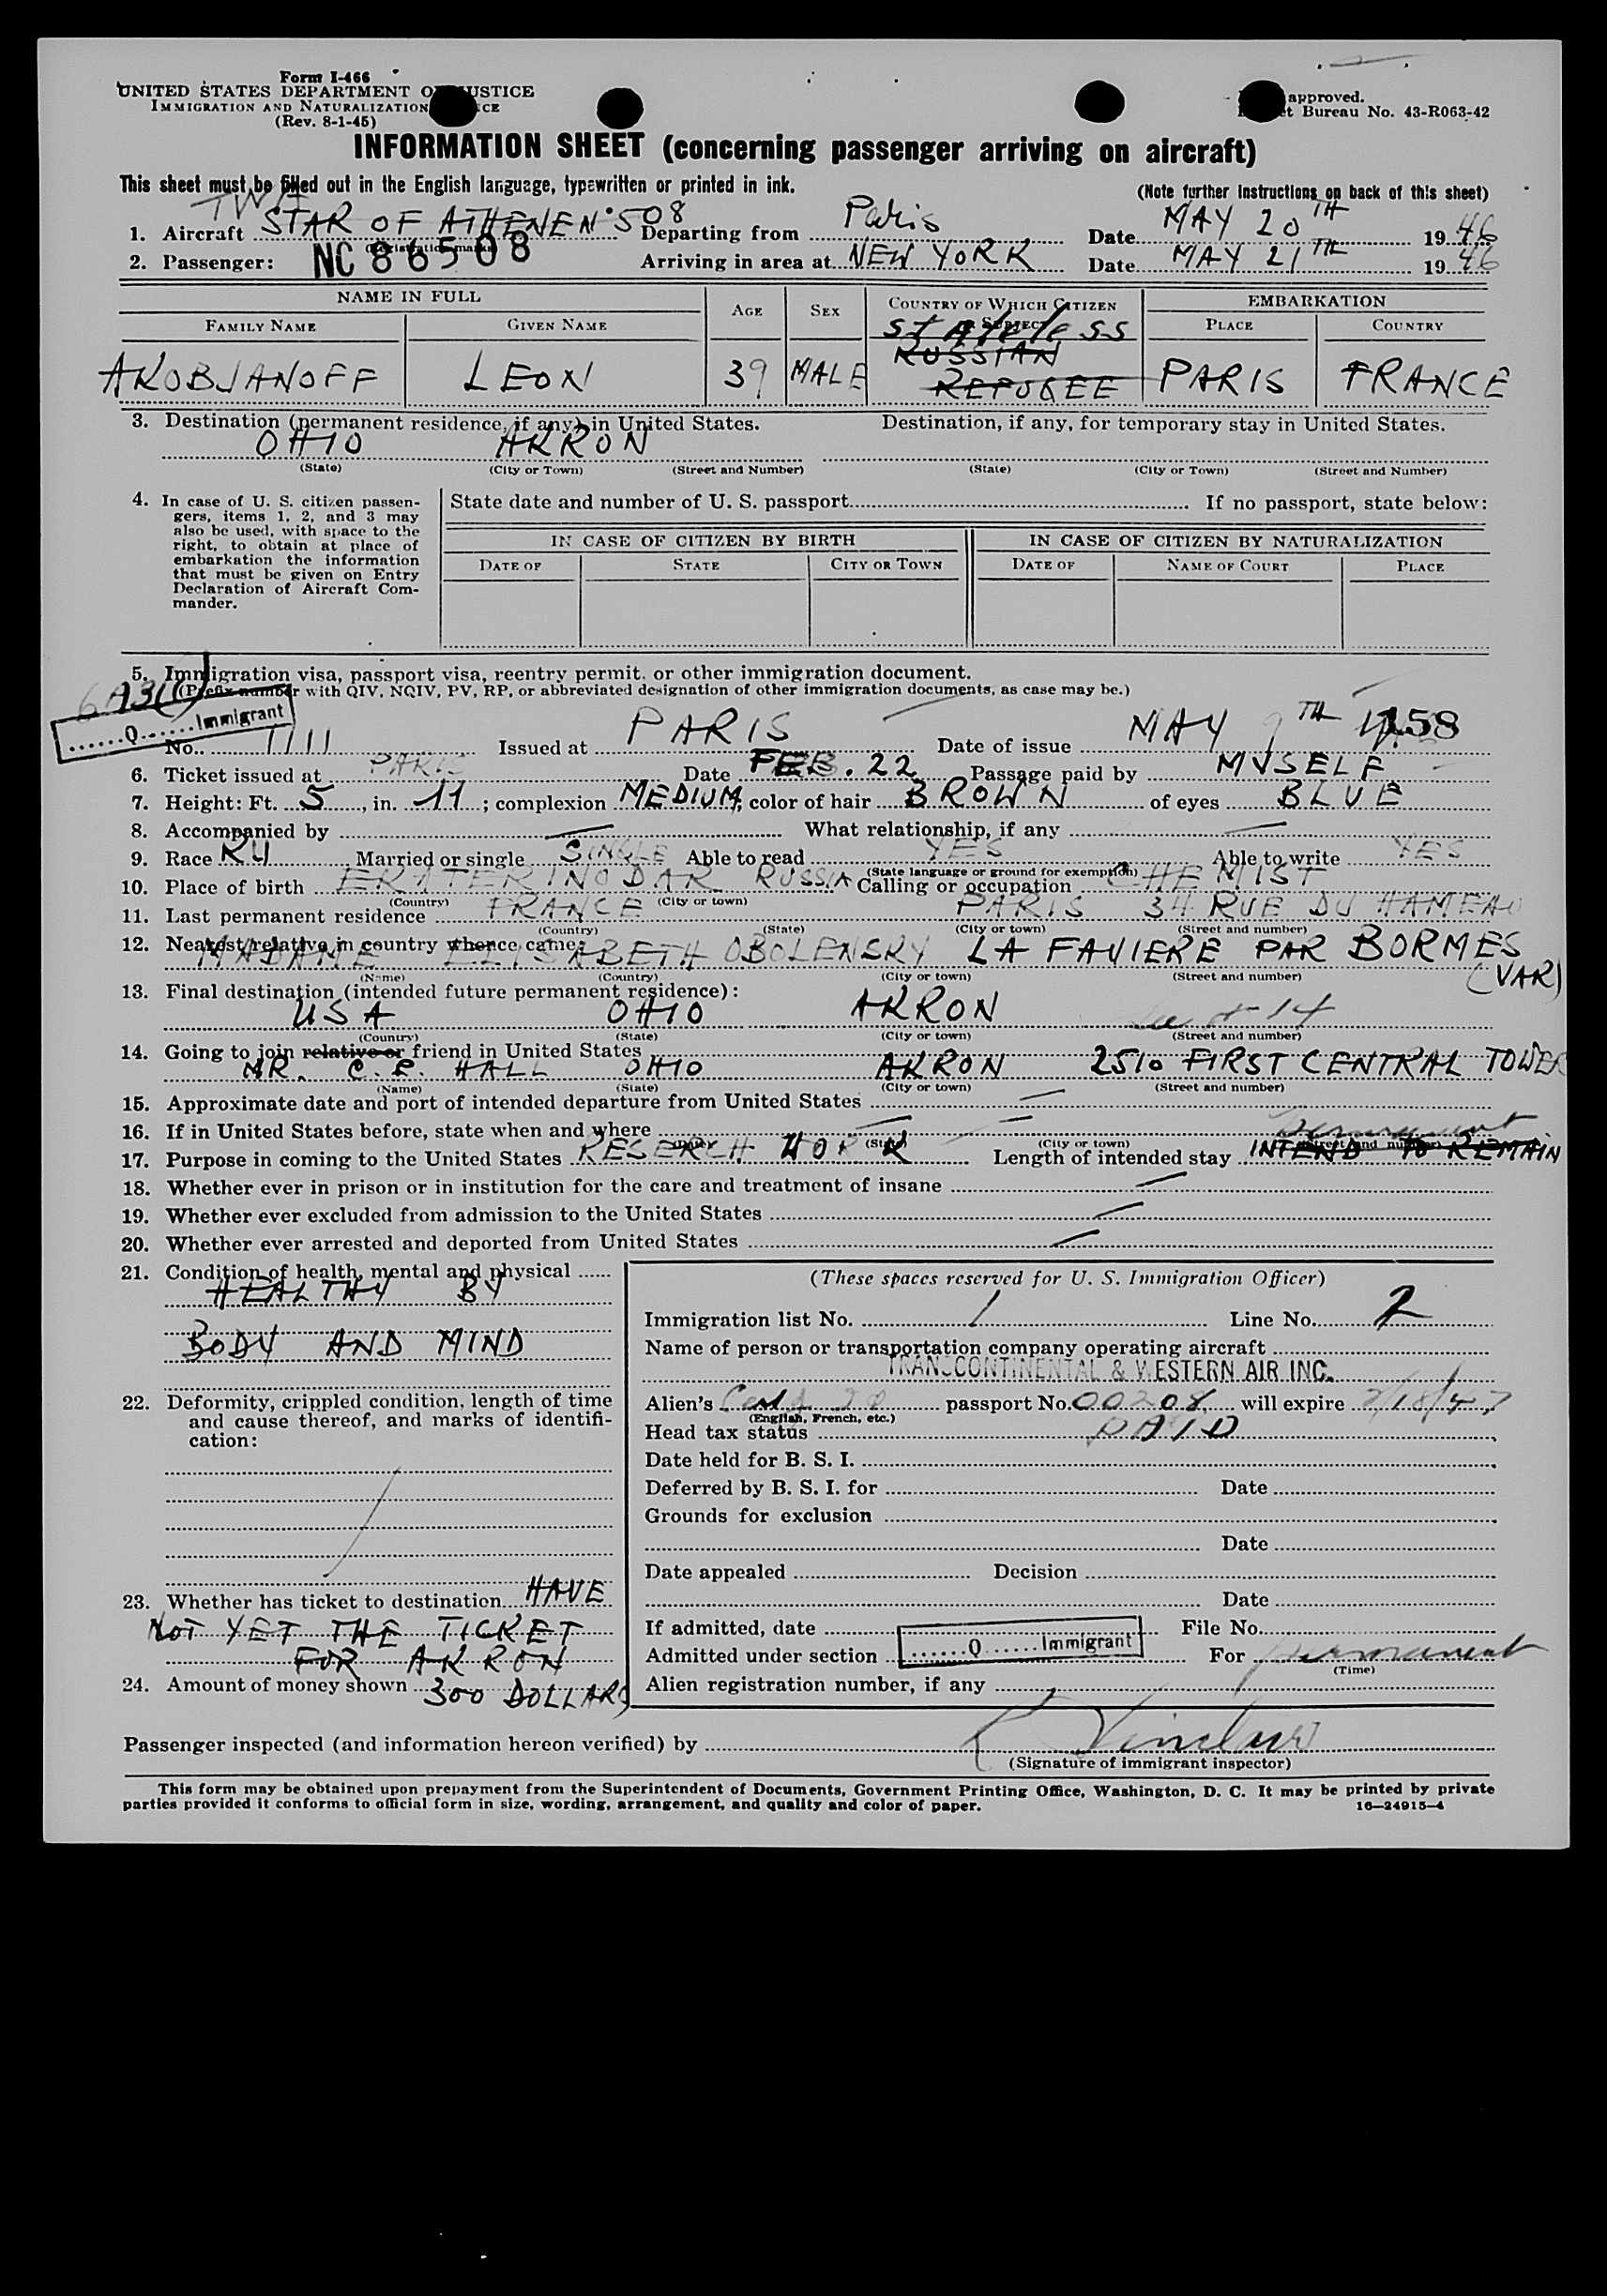 Form I-466
UNITED STATES DEPARTMENT OF JUSTICE
IMMIGRATION AND NATURALIZATION
(Rev. 8-1-45)
approved.
Bureau No. 43-R063-42
INFORMATION SHEET (concerning passenger arriving on aircraft)
This sheet must be filled out in the English language, typewritten or printed in ink.
(Note further instructions on back of this sheet)
TWA
1. Aircraft STAR OF ATHENE N°508 Departing from Paris Date MAY 20TH 1946
2. Passenger: NC 86508 Arriving in area at NEW YORK Date MAY 21TH 1946
NAME IN FULL AGE SEX COUNTRY OF WHICH CITIZEN OR SUBJECT EMBARKATION
FAMILY NAME GIVEN NAME PLACE COUNTRY
stateless
RUSSIAN
AKOBJANOFF LEON 39 MALE REFUGEE PARIS FRANCE
3. Destination (permanent residence, if any) in United States. Destination, if any, for temporary stay in United States.
OHIO AKRON
(State) (City or Town) (Street and Number) (State) (City or Town) (Street and Number)
4. In case of U. S. citizen passengers, items 1, 2, and 3 may also be used, with space to the right, to obtain at place of embarkation the information that must be given on Entry Declaration of Aircraft Commander.
State date and number of U. S. passport If no passport, state below:
IN CASE OF CITIZEN BY BIRTH IN CASE OF CITIZEN BY NATURALIZATION
DATE OF STATE CITY OR TOWN DATE OF NAME OF COURT PLACE
5. Immigration visa, passport visa, reentry permit, or other immigration document.
(Prefix number with QIV, NQIV, PV, RP, or abbreviated designation of other immigration documents, as case may be.)
6A3(1)
......Q......Immigrant
No. 1111 Issued at PARIS Date of issue MAY 9TH 158
6. Ticket issued at PARIS Date FEB. 22 Passage paid by MYSELF
7. Height: Ft. 5, in. 11; complexion MEDIUM; color of hair BROWN of eyes BLUE
8. Accompanied by — What relationship, if any —
9. Race RU Married or single SINGLE Able to read YES Able to write YES
(State language or ground for exemption)
10. Place of birth EKATERINODAR RUSSIA Calling or occupation CHEMIST
(Country) (City or town)
11. Last permanent residence FRANCE PARIS 34 RUE DU HAMEAU
(Country) (State) (City or town) (Street and number)
12. Nearest relative in country whence came:
MADAME ELISABETH OBOLENSKY LA FAVIERE PAR BORMES (VAR)
(Name) (Country) (City or town) (Street and number)
13. Final destination (intended future permanent residence):
USA OHIO AKRON 14
(Country) (State) (City or town) (Street and number)
14. Going to join relative or friend in United States
MR. C. P. HALL OHIO AKRON 2510 FIRST CENTRAL TOWER
(Name) (State) (City or town) (Street and number)
15. Approximate date and port of intended departure from United States —
16. If in United States before, state when and where — —
(Date) (State) (City or town) (Street and number)
permanent
17. Purpose in coming to the United States RESERCH WORK Length of intended stay INTEND TO REMAIN
18. Whether ever in prison or in institution for the care and treatment of insane —
19. Whether ever excluded from admission to the United States —
20. Whether ever arrested and deported from United States —
21. Condition of health, mental and physical
HEALTHY BY
BODY AND MIND
22. Deformity, crippled condition, length of time and cause thereof, and marks of identification:
/
23. Whether has ticket to destination HAVE
NOT YET THE TICKET
FOR AKRON
24. Amount of money shown 300 DOLLARS
(These spaces reserved for U. S. Immigration Officer)
Immigration list No. 1 Line No. 2
Name of person or transportation company operating aircraft
TRANSCONTINENTAL & WESTERN AIR INC.
Alien's passport No. 00208 will expire 2/18/47
(English, French, etc.)
Head tax status PAID
Date held for B. S. I.
Deferred by B. S. I. for Date
Grounds for exclusion
Date
Date appealed Decision
Date
If admitted, date File No.
Admitted under section ......Q......Immigrant For permanent
(Time)
Alien registration number, if any
Passenger inspected (and information hereon verified) by
(Signature of immigrant inspector)
This form may be obtained upon prepayment from the Superintendent of Documents, Government Printing Office, Washington, D. C. It may be printed by private
parties provided it conforms to official form in size, wording, arrangement, and quality and color of paper. 16—24915-4